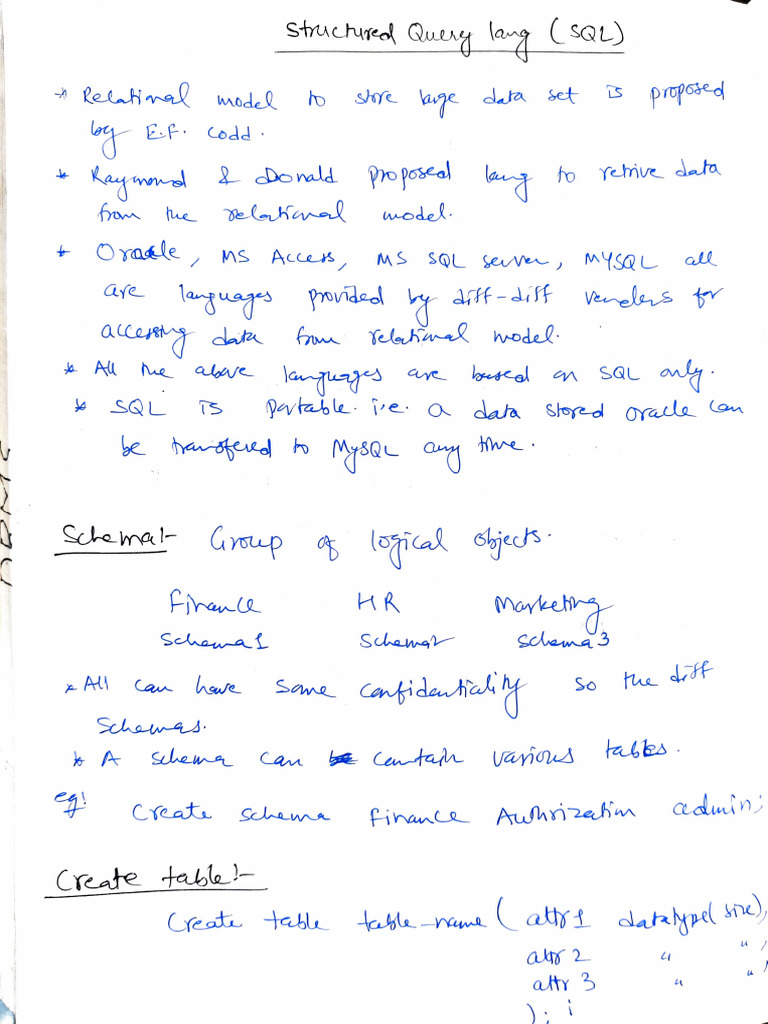 Structured Query lang (SQL)
* Relational model to store large data set is proposed
by E.F. Codd.
* Raymond & Donald proposed lang to retrive data
from the relational model.
* Oracle, MS Access, MS SQL server, MYSQL all
are languages provided by diff-diff venders for
accessing data from relational model.
* All the above languages are based on SQL only.
* SQL is portable. i.e. a data stored oracle can
be transfered to MySQL any time.
Schema:- Group of logical objects.
Finance HR Marketing
Schema1 Schema2 Schema3
* All can have some confidentiality so the diff
schemas.
* A schema can contain various tables.
eg: Create schema finance Authrization admin;
Create table:-
Create table table-name ( attr1 datatype(size),
attr 2 " ",
attr 3 " "
);